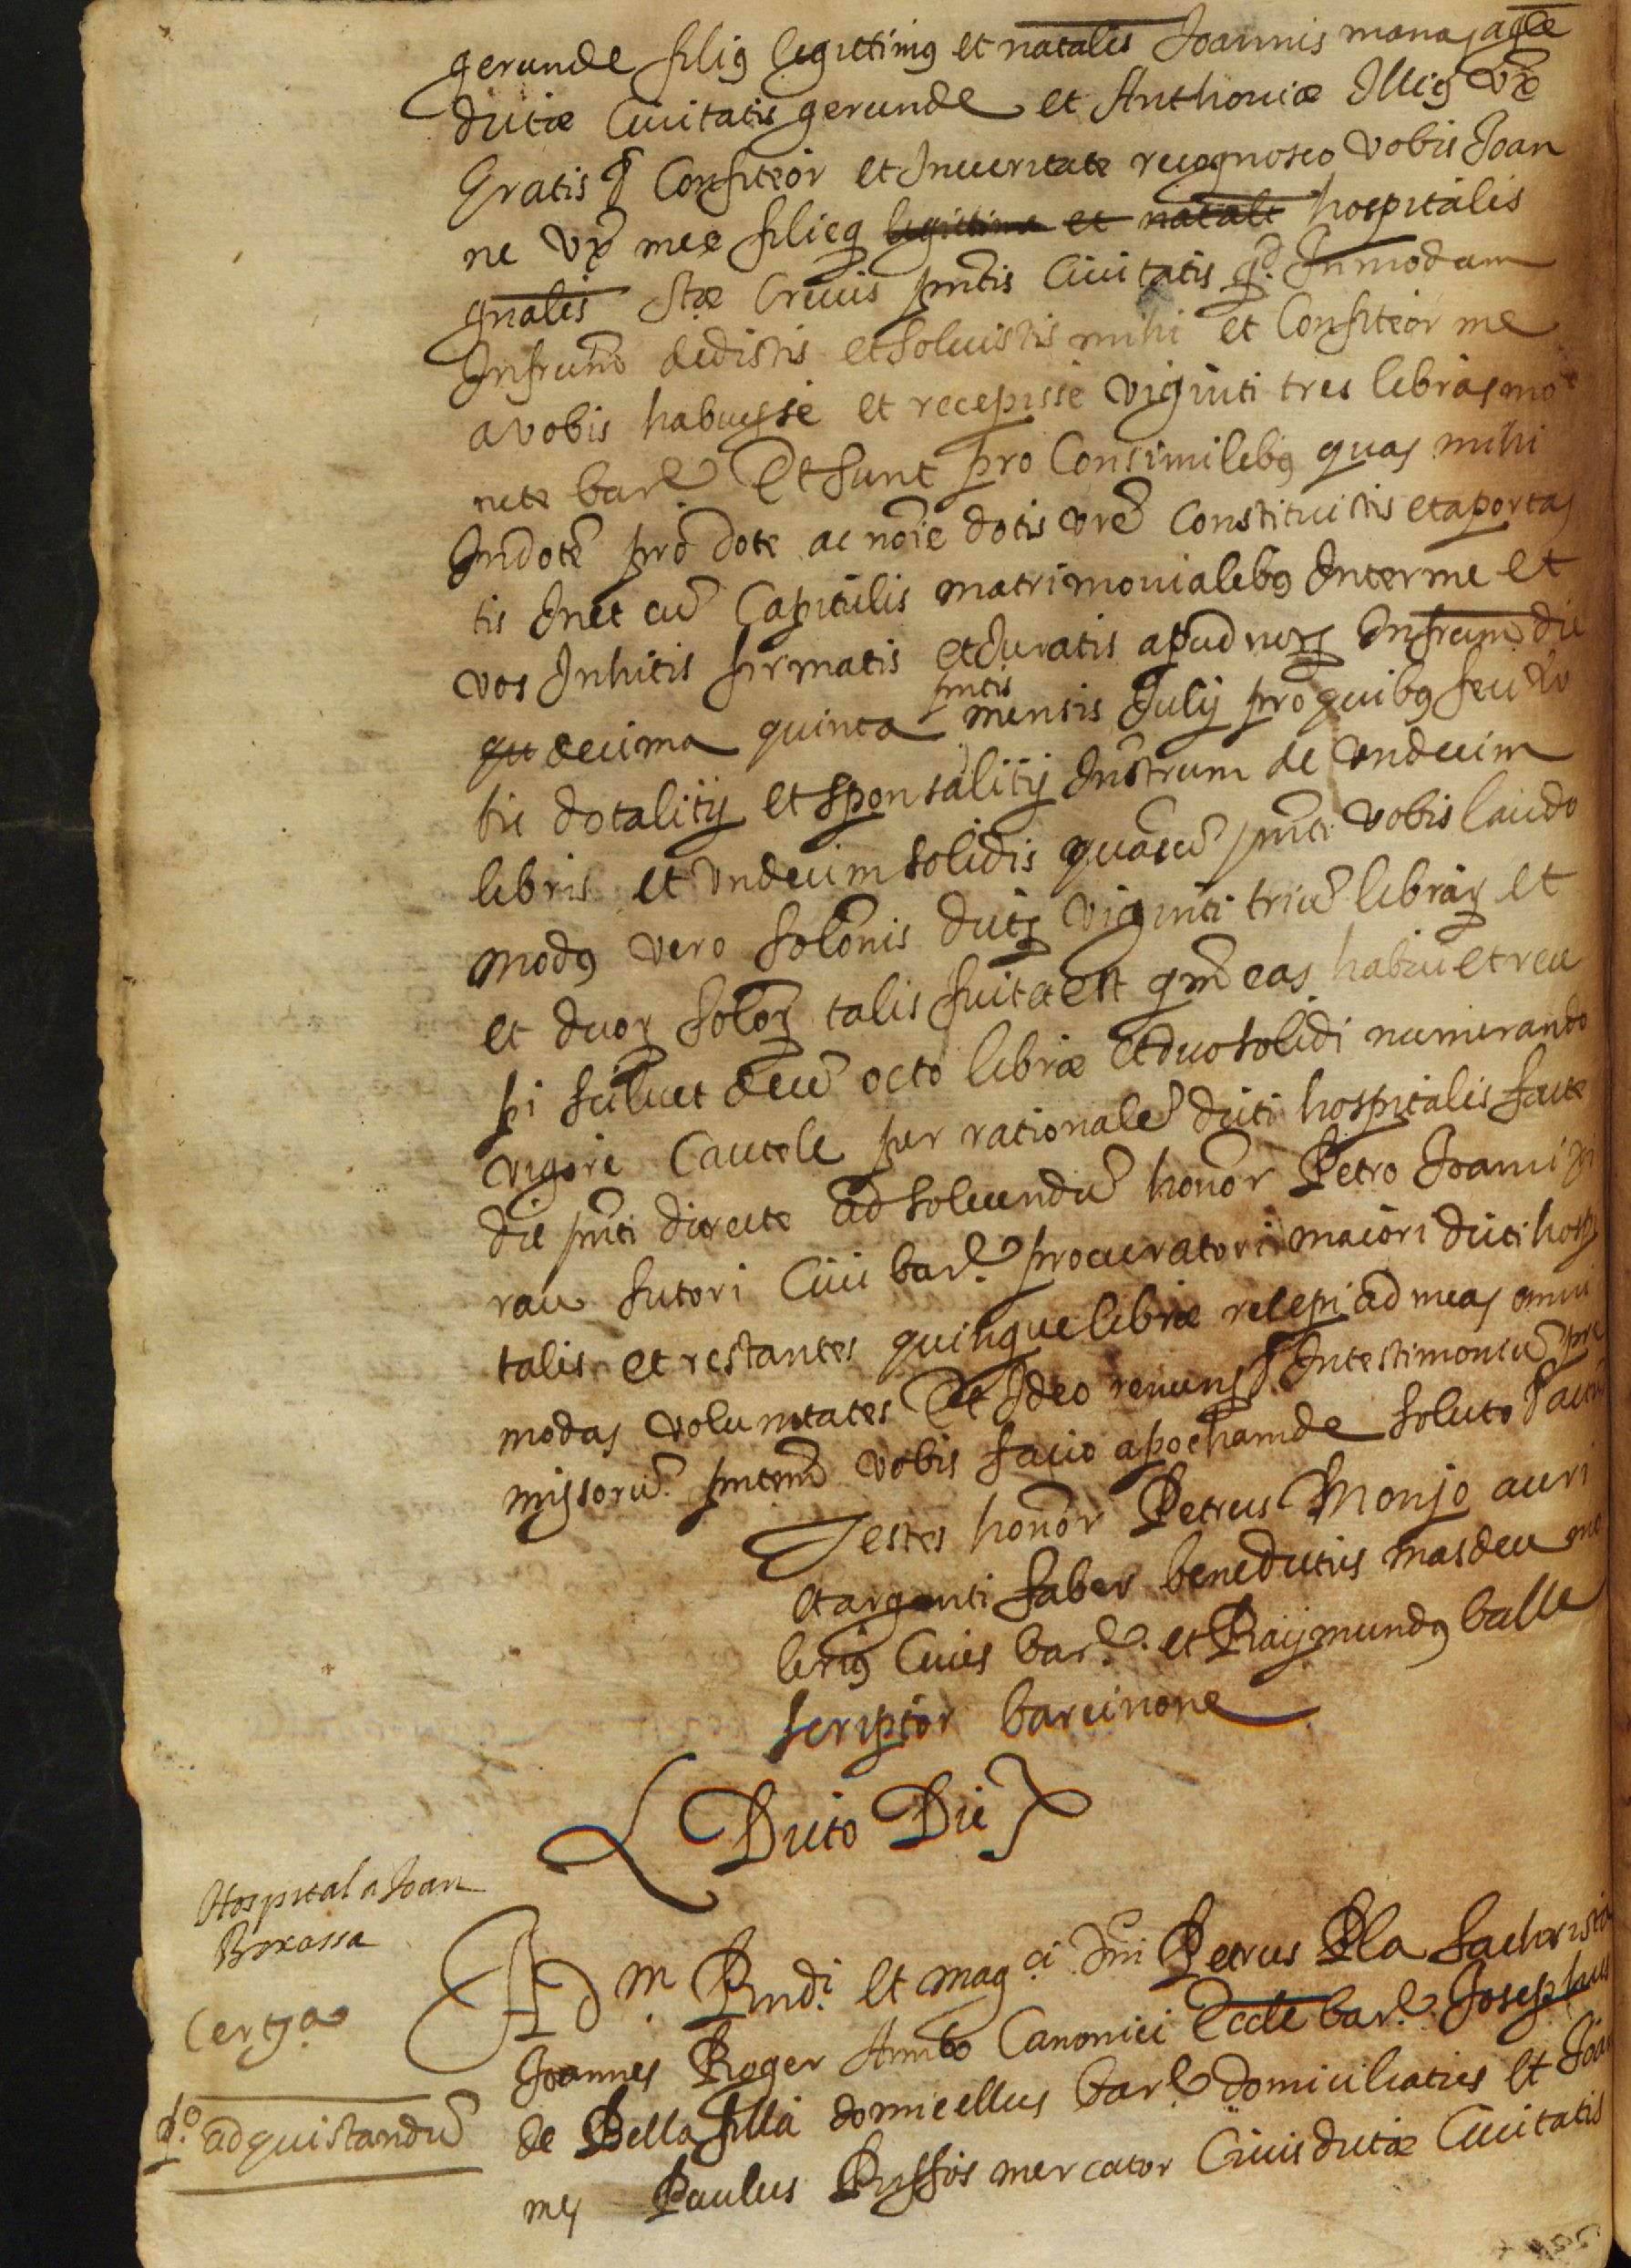 gerunde filiꝯ legittimꝯ et natalis Joannis mana, agle
dictæ Ciuitatis gerunde et Anthoniæ Illiꝯ vx̄
Gratis & Confiteor et In veritate recognosco vobis Joan
ne vx̄ mee filieq̄ legittime et natali hospitalis
gnalis Stæ Crucis pntis Ciuitatis qd. In modum
Infrum̄ dedistis et soluistis mihi et Confiteor me
a vobis habuisse et recepisse viginti tres libras mo
nete bar.̃ Et sunt pro Consimilibꝯ quas mihi
In dotē pro dote ac noīe dotis vr̄e Constituistis et aportas
tis In et cū Capitulis matrimonialibꝯ Inter me et
vos Inhitis firmatis et Juratis apud nots Infrum̄ die
qu decima quinta pntis mensis Julij pro quibꝯ feu do
bie dotalitij et sponsalitij Instrum de undecim
libris et undecim solidis quascū pnti vobis laudo
modꝯ vero solōnis dictꝝ viginti triū librarꝝ et
et duorꝝ solorꝝ talis fuit et est qm̄ eas habui et rece
pi scilicet decē octo libræ et duo solidi numerando
vigore Cautele per rationalē dicti hospitalis facte
die pnti directe ad soluendū honor Petro Joanni
rau sutori Ciui bar.̃ procuratori maiori dicti hospi
talis et restantes quinque libræ recepi ad meas omni
modas voluntates Et Ideo renuns & In testimoniū pre
missorū pntem vobis facio apocham de soluto & actum
Testes honor Petrus Monjo auri
et argenti faber benedictus masdeu mo
leriꝯ Ciues bar.̃ et Raijmundꝯ balle
scriptor barcinone
Dicto Die
Hospital a Joan
Borassa
Certga
do. ad quistandū
Ad m. Rndi. et mag.ci Dn̄i Petrus Pla sachrista
Joannes Roger Ambo Canonici Eccle bar.̃ Josephus
de Bellafilla domicellus bar.̃ domiciliatus et Joan
nes Paulus Ryffos mercator Ciuis dictæ Ciuitatis